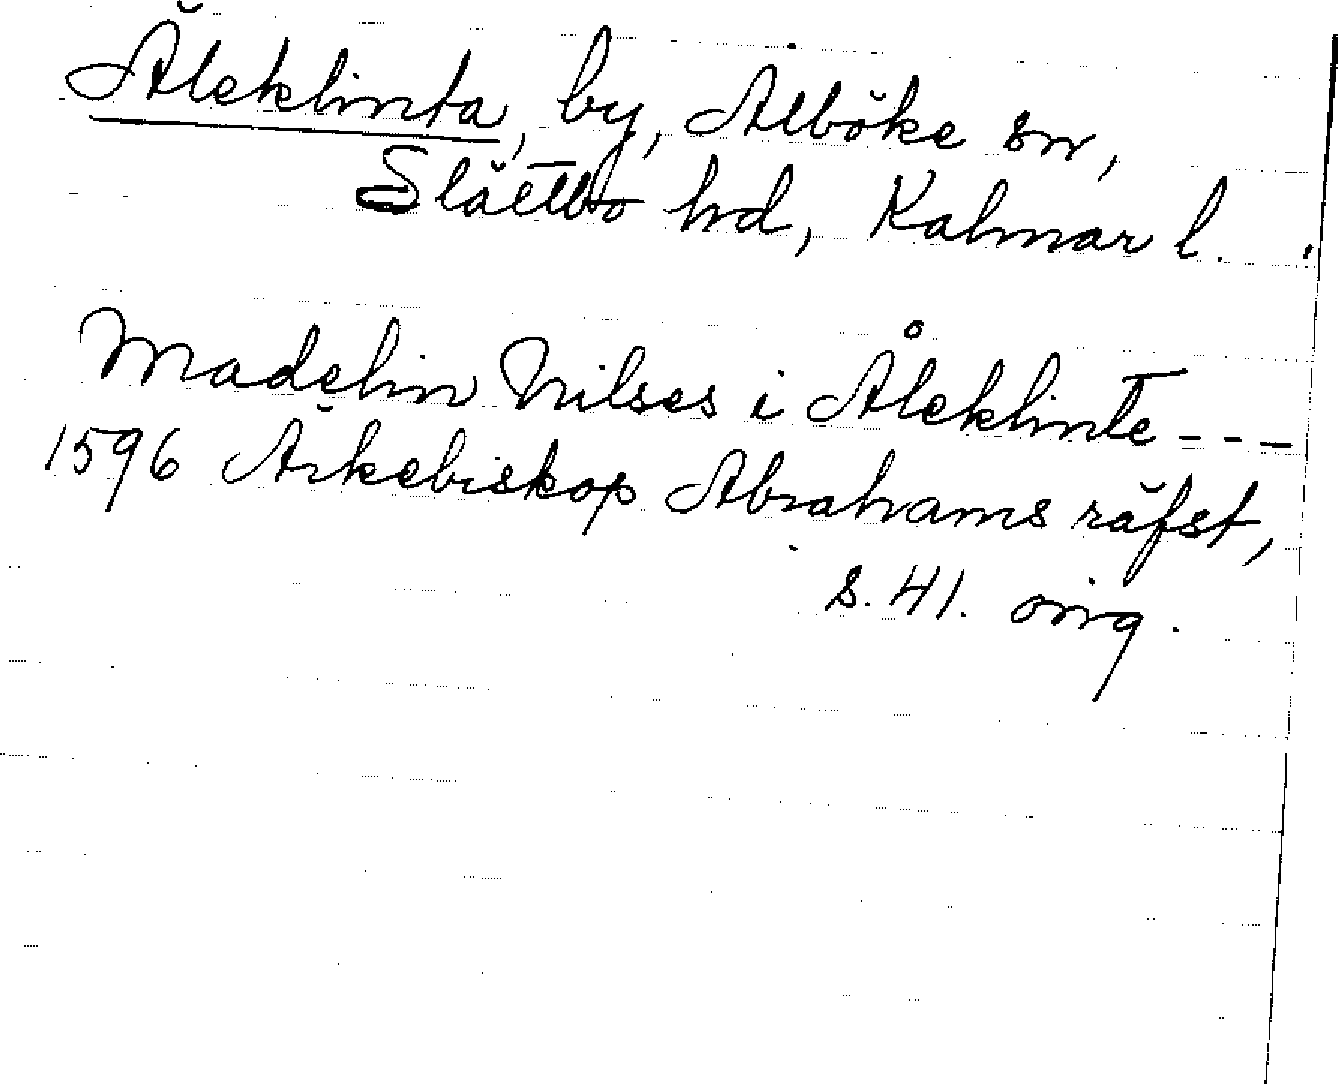 Äleklinta, by, Alböke sn,
Slättbo hd, Kalmar l.
Madelin Nilses i Åleklinte - - -
1596 Ärkebiskop Abrahams räfst,
s. 41. orig.